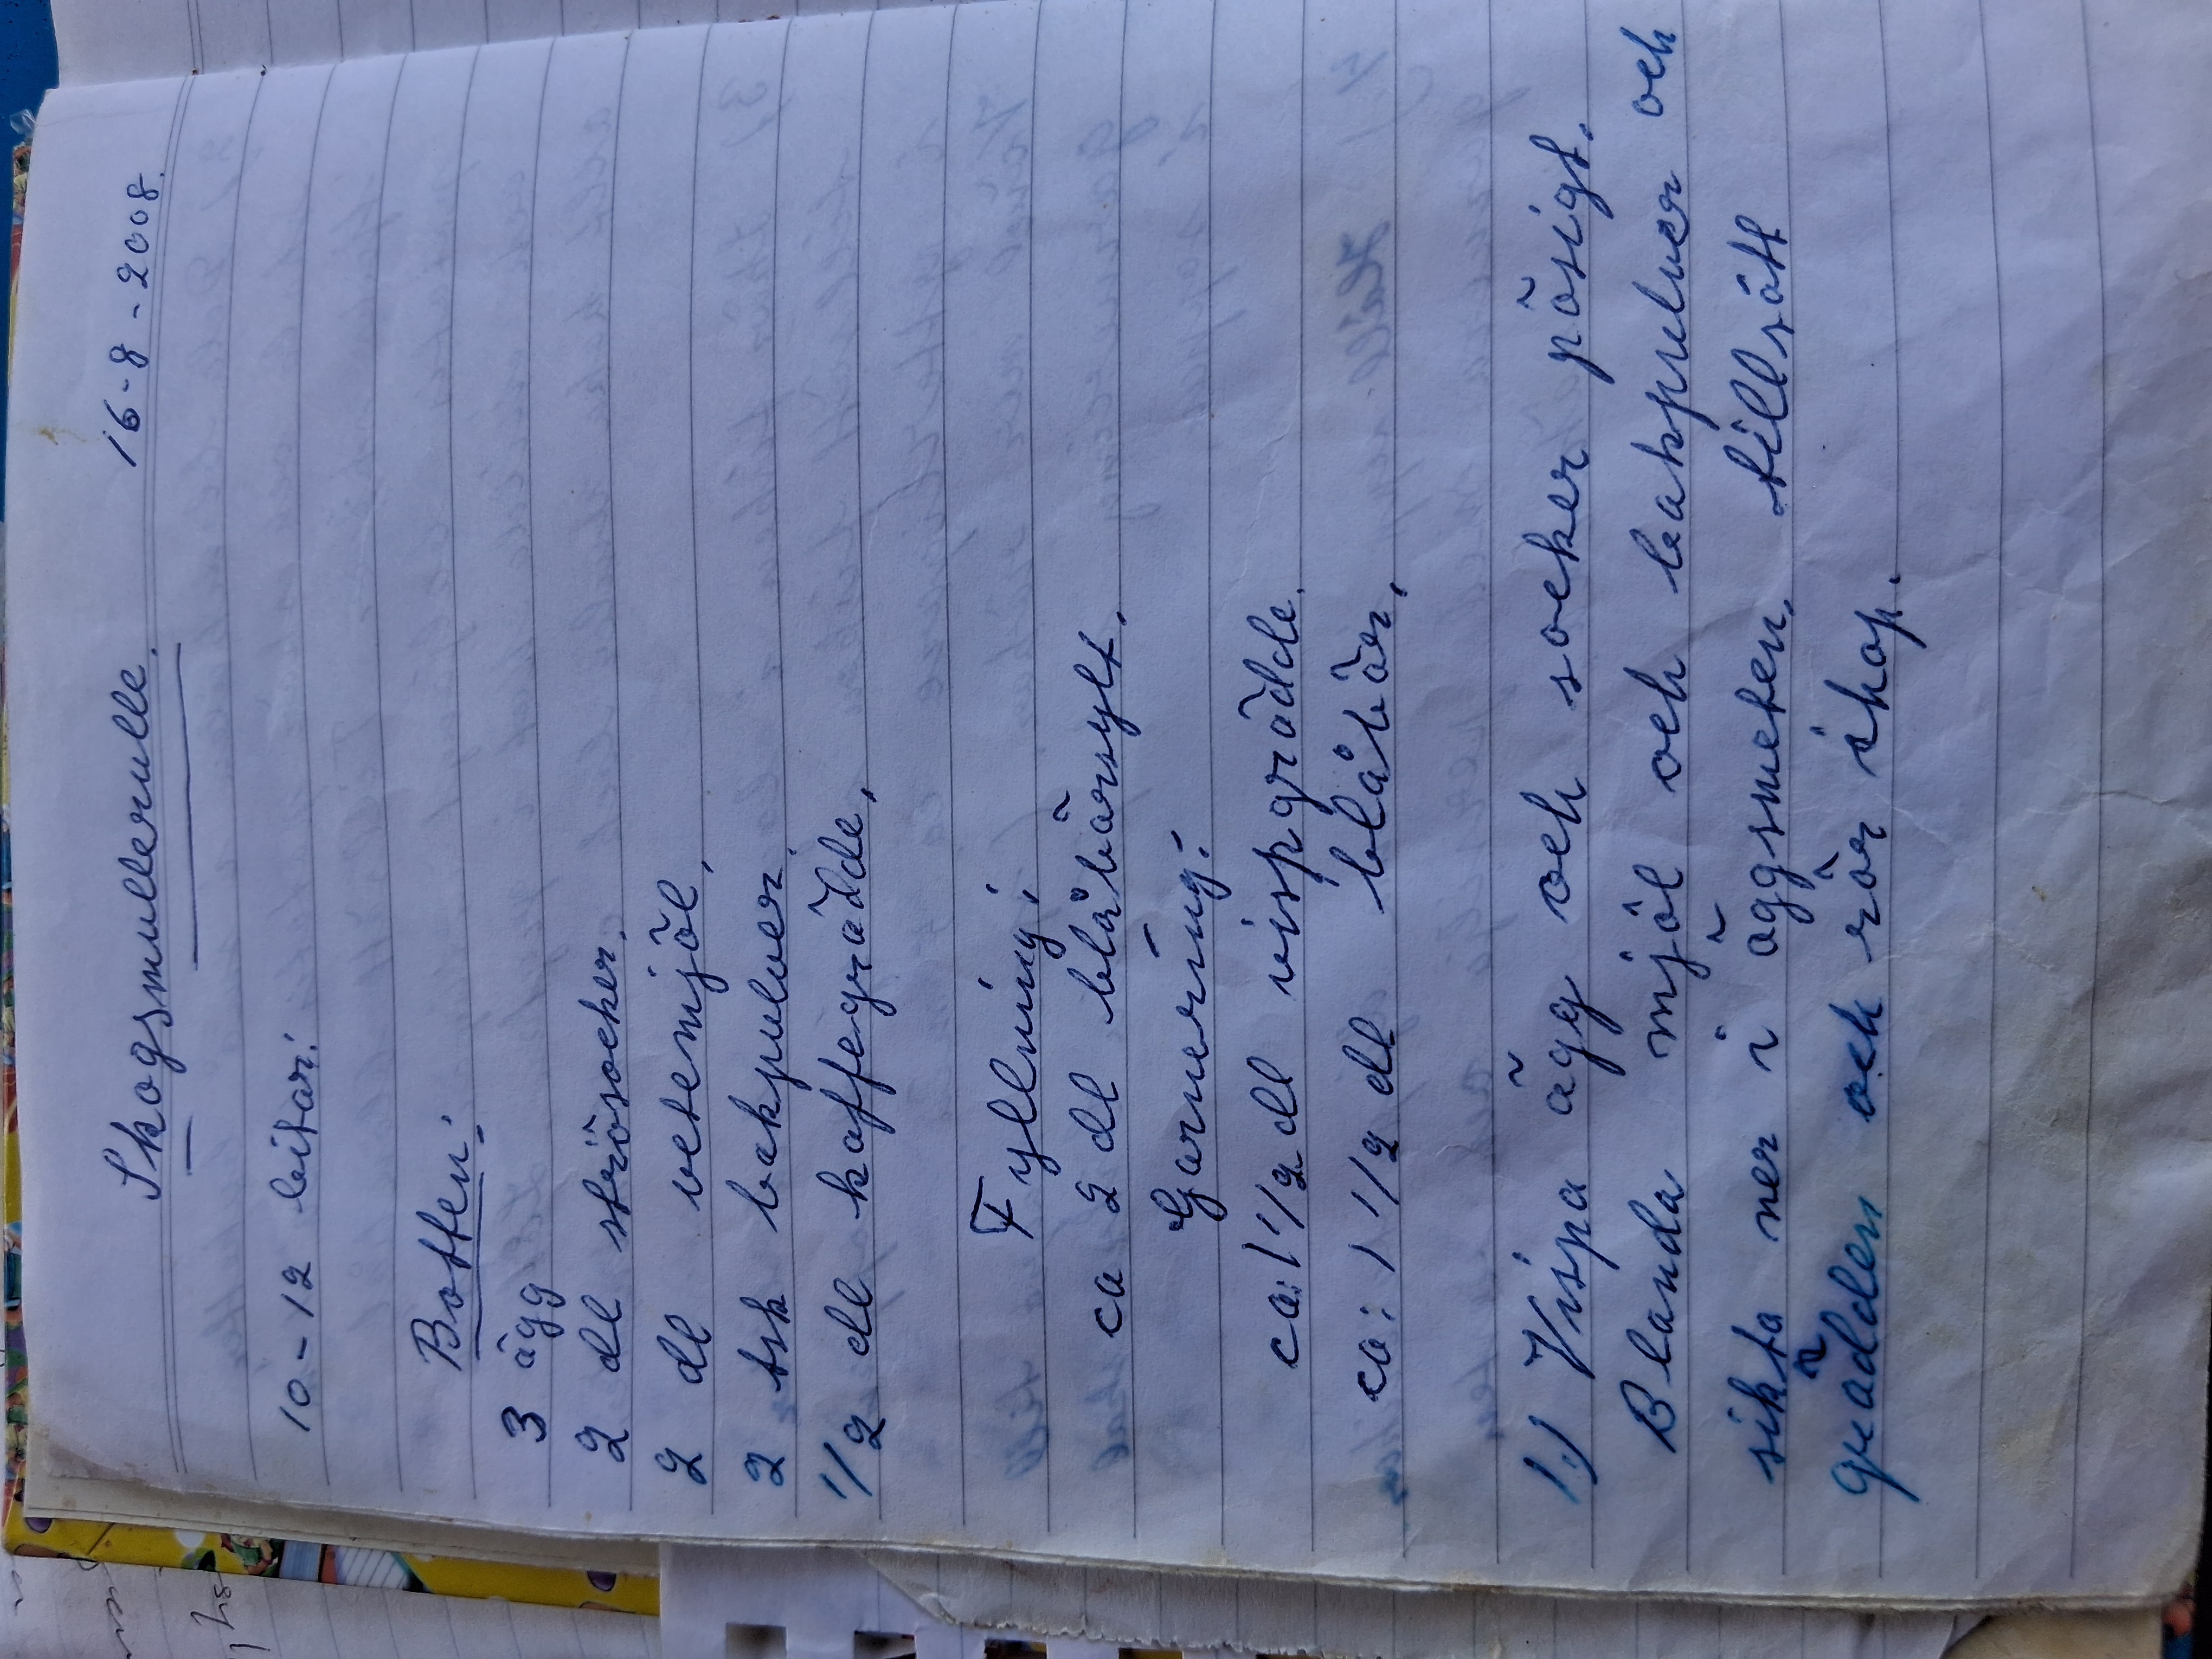 Skogsmullerulle. 16-8-2008.
10-12 bitar:
Botten:
3 ägg
2 dl strösocker.
2 dl vetemjöl,
2 tsk bakpulver.
1/2 dl kaffegrädde,
Fyllning:
ca 2 dl blåbärsylt.
Garnering:
ca: 1 1/2 dl vispgrädde.
ca: 1 1/2 dl blåbär,
1.) Vispa ägg och socker pösigt.
Blanda mjöl och bakpulver och
sikta ner i äggsmeten. tillsätt
grädden och rör ihop.